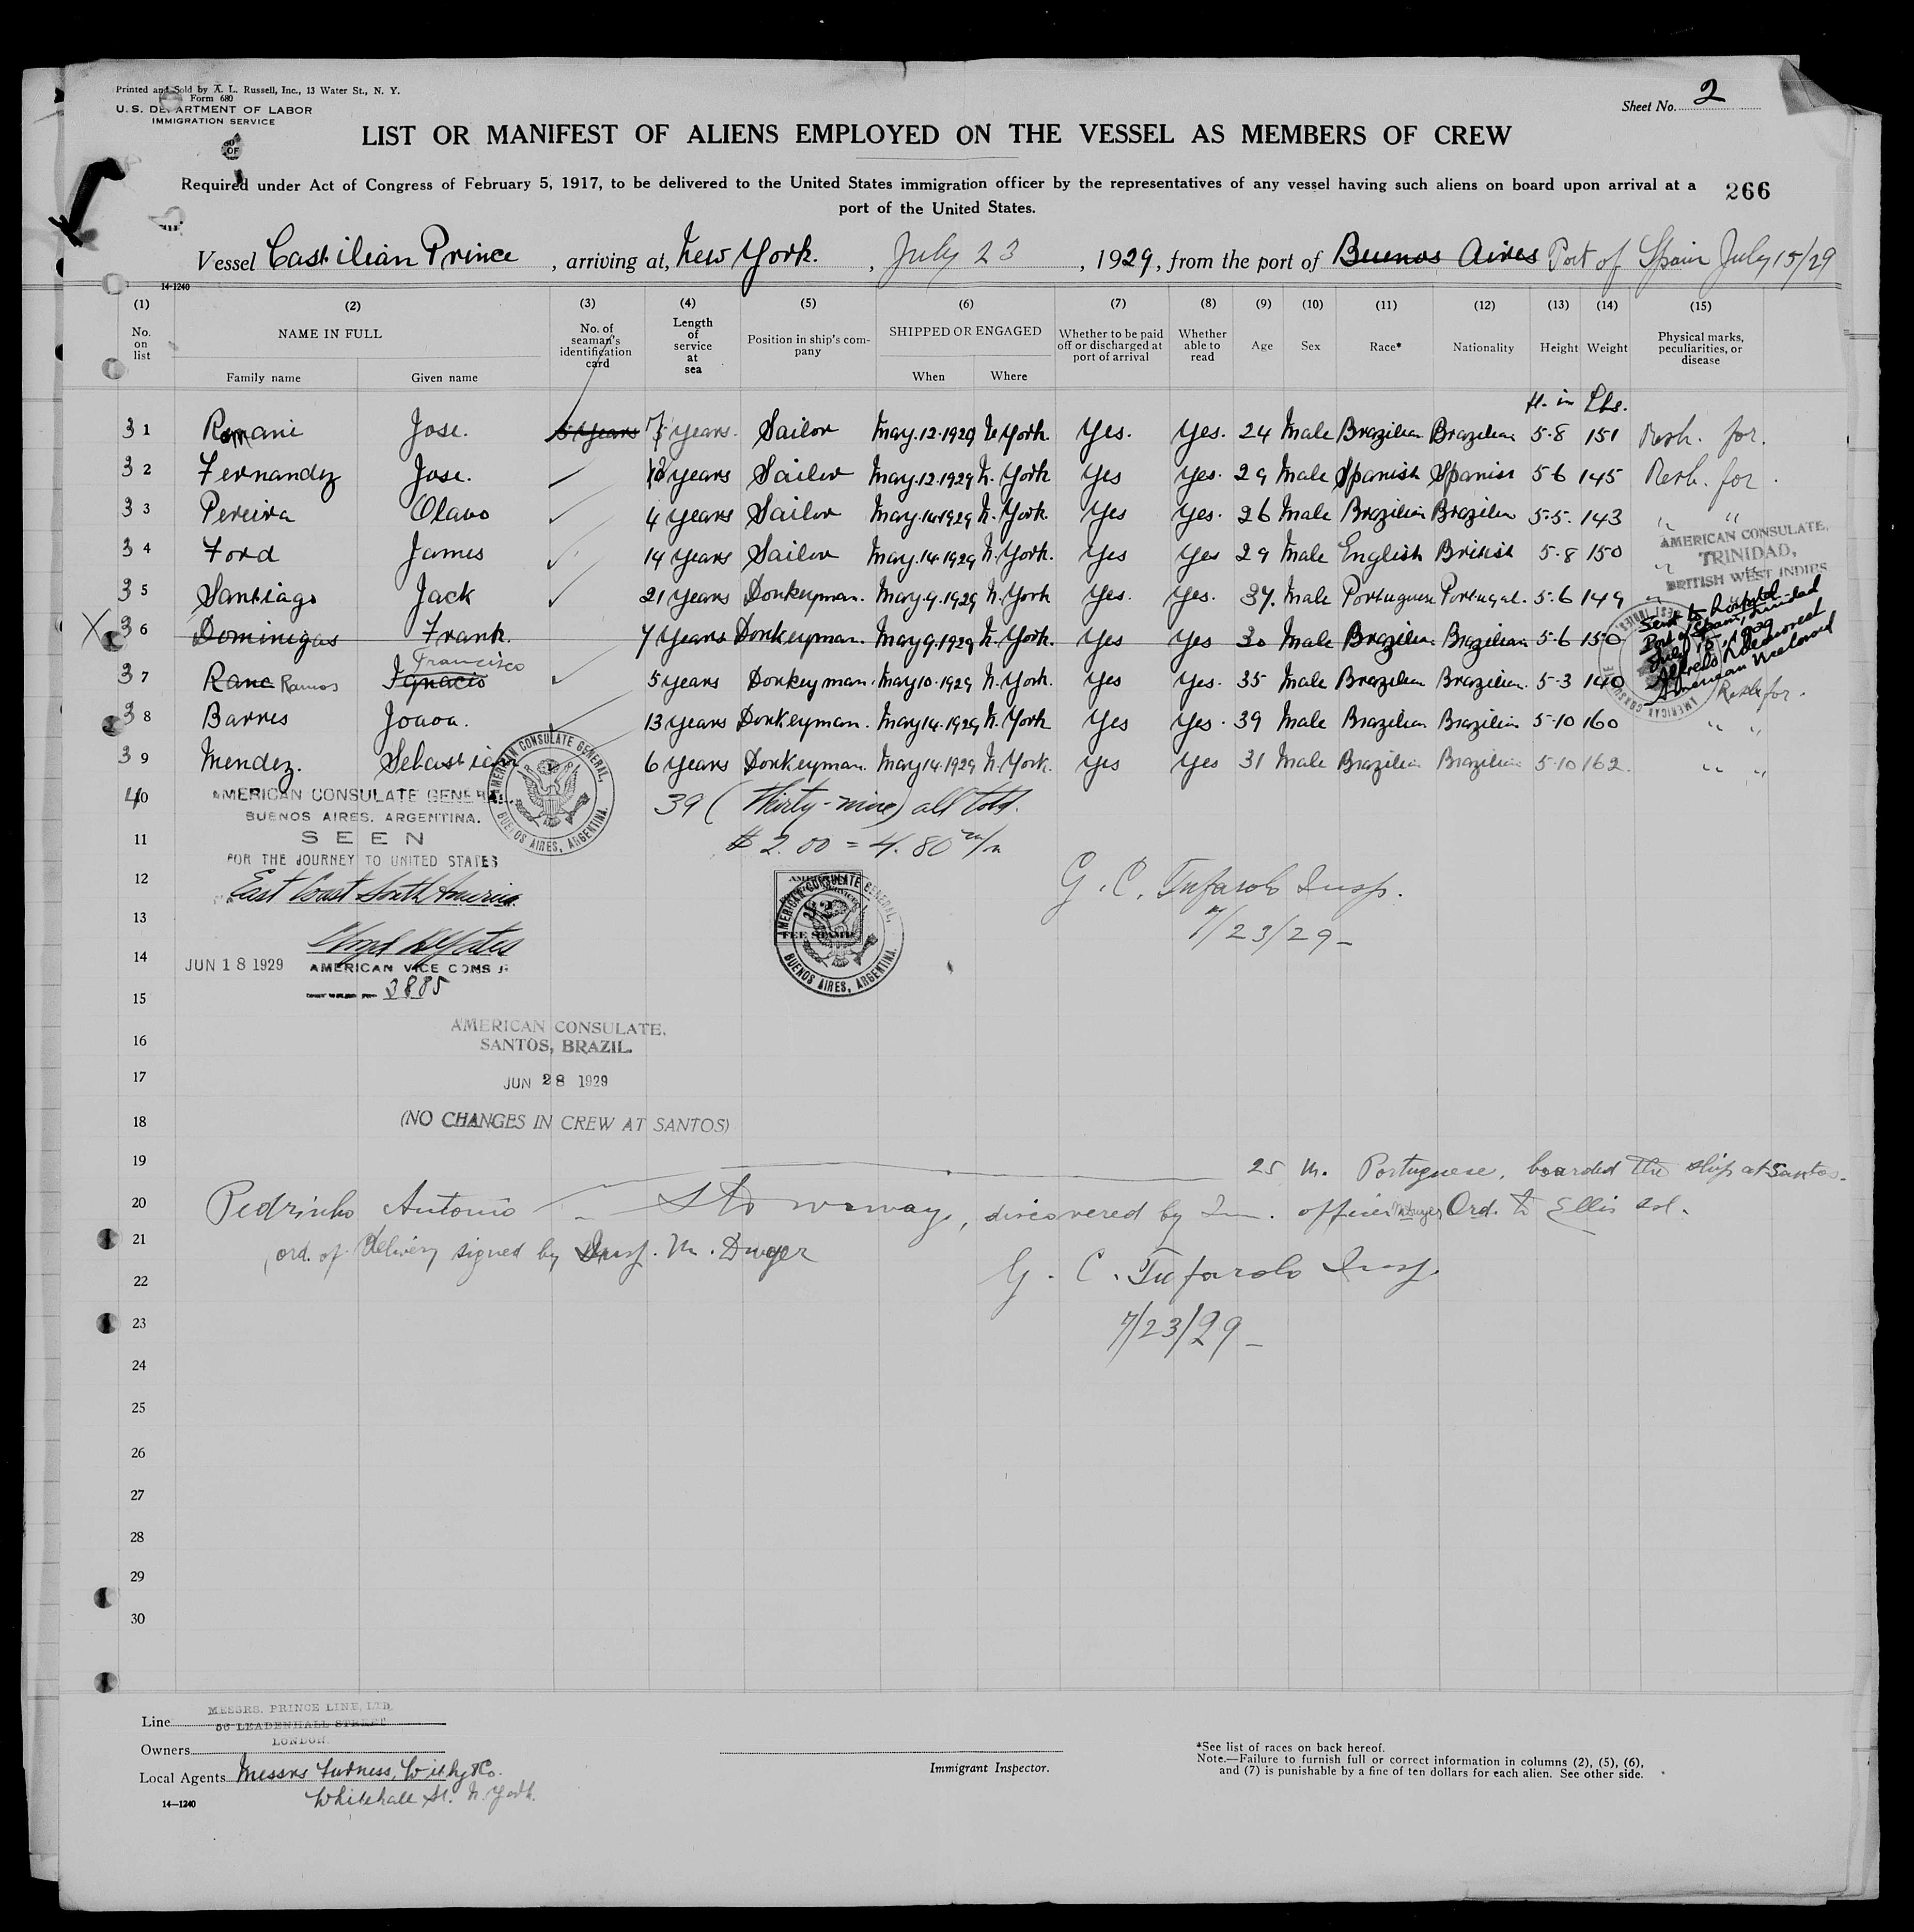 Printed and Sold by A. L. Russell, Inc., 13 Water St., N. Y.
Form 680
U. S. DEPARTMENT OF LABOR
IMMIGRATION SERVICE
Sheet No. 2
LIST OR MANIFEST OF ALIENS EMPLOYED ON THE VESSEL AS MEMBERS OF CREW
Required under Act of Congress of February 5, 1917, to be delivered to the United States immigration officer by the representatives of any vessel having such aliens on board upon arrival at a
port of the United States.
266
Vessel Castilian Prince, arriving at, New York., July 23, 1929, from the port of Buenos Aires Port of Spain July 15/29
14-1240
(1) (2) (3) (4) (5) (6) (7) (8) (9) (10) (11) (12) (13) (14) (15)
No. on list NAME IN FULL Family name Given name No. of seaman's identification card Length of service at sea Position in ship's company SHIPPED OR ENGAGED When Where Whether to be paid off or discharged at port of arrival Whether able to read Age Sex Race* Nationality Height Weight Physical marks, peculiarities, or disease
ft. in Lbs.
31 Romani Jose. 5 Years 5 years. Sailor May.12.1929 N York Yes. Yes. 24 Male Brazilian Brazilian 5-8 151 Resh. for.
32 Fernandez Jose. 18 years Sailor May.12.1929 N. York Yes Yes. 29 Male Spanish Spanish 5-6 145 Resh. for.
33 Pereira Olavo 4 years Sailor May.14.1929 N. York. Yes Yes. 26 Male Brazilian Brazilian 5-5. 143 " "
34 Ford James 14 years Sailor May.14.1929 N. York. Yes Yes 29 Male English British 5-8 150 "
AMERICAN CONSULATE,
TRINIDAD,
BRITISH WEST INDIES
35 Santiago Jack 21 years Donkeyman. May.9.1929 N. York Yes. Yes. 37. Male Portuguese Portugal. 5-6 149
X 36 Dominigas Frank. 7 Years Donkeyman. May 9.1929 N. York Yes Yes 30 Male Brazilian Brazilian 5-6 150
Sent to hospital
Port of Spain, Trinidad
July 15, 1929
37 Rana Ramos Ignacio Francisco 5 years Donkeyman. May 10.1929 N. York. Yes Yes. 35 Male Brazilian Brazilian. 5-3 140 Resh for.
38 Barres Joaoa. 13 years Donkeyman. May 14.1929 N. York Yes Yes. 39 Male Brazilian Brazilian 5-10 160 " "
39 Mendez. Sebastian 6 years Donkeyman. May 14.1929 N. York. Yes Yes 31 Male Brazilian Brazilian 5-10 162. " "
40 39 (Thirty-nine) all told.
AMERICAN CONSULATE GENERAL,
BUENOS AIRES. ARGENTINA.
AMERICAN CONSULATE GENERAL, BUENOS AIRES, ARGENTINA.
$ 2.00 = 4.80 m/n
11 SEEN
FOR THE JOURNEY TO UNITED STATES
12 East Coast South America
G. C. Tufarolo Insp.
7/23/29
AMERICAN CONSULATE GENERAL, BUENOS AIRES, ARGENTINA.
FEE STAMP
13
14 JUN 18 1929 AMERICAN VICE CONSUL
3885
15
AMERICAN CONSULATE,
16 SANTOS, BRAZIL.
17 JUN 28 1929
18 (NO CHANGES IN CREW AT SANTOS)
19 25 M. Portuguese, boarded the ship at Santos.
20 Pedrinho Antonio - Stowaway, discovered by Im. officer M Dwyer Ord. to Ellis Isl.
21 ord. of delivery signed by Insp. M. Dwyer
22 G. C. Tufarolo Insp.
23 7/23/29
24
25
26
27
28
29
30
Line MESSRS. PRINCE LINE, LTD.
56 LEADENHALL STREET
Owners LONDON.
Local Agents Messrs Furness, Withy & Co.
Whitehall St. N. York.
14-1240
Immigrant Inspector.
*See list of races on back hereof.
Note.—Failure to furnish full or correct information in columns (2), (5), (6),
and (7) is punishable by a fine of ten dollars for each alien. See other side.